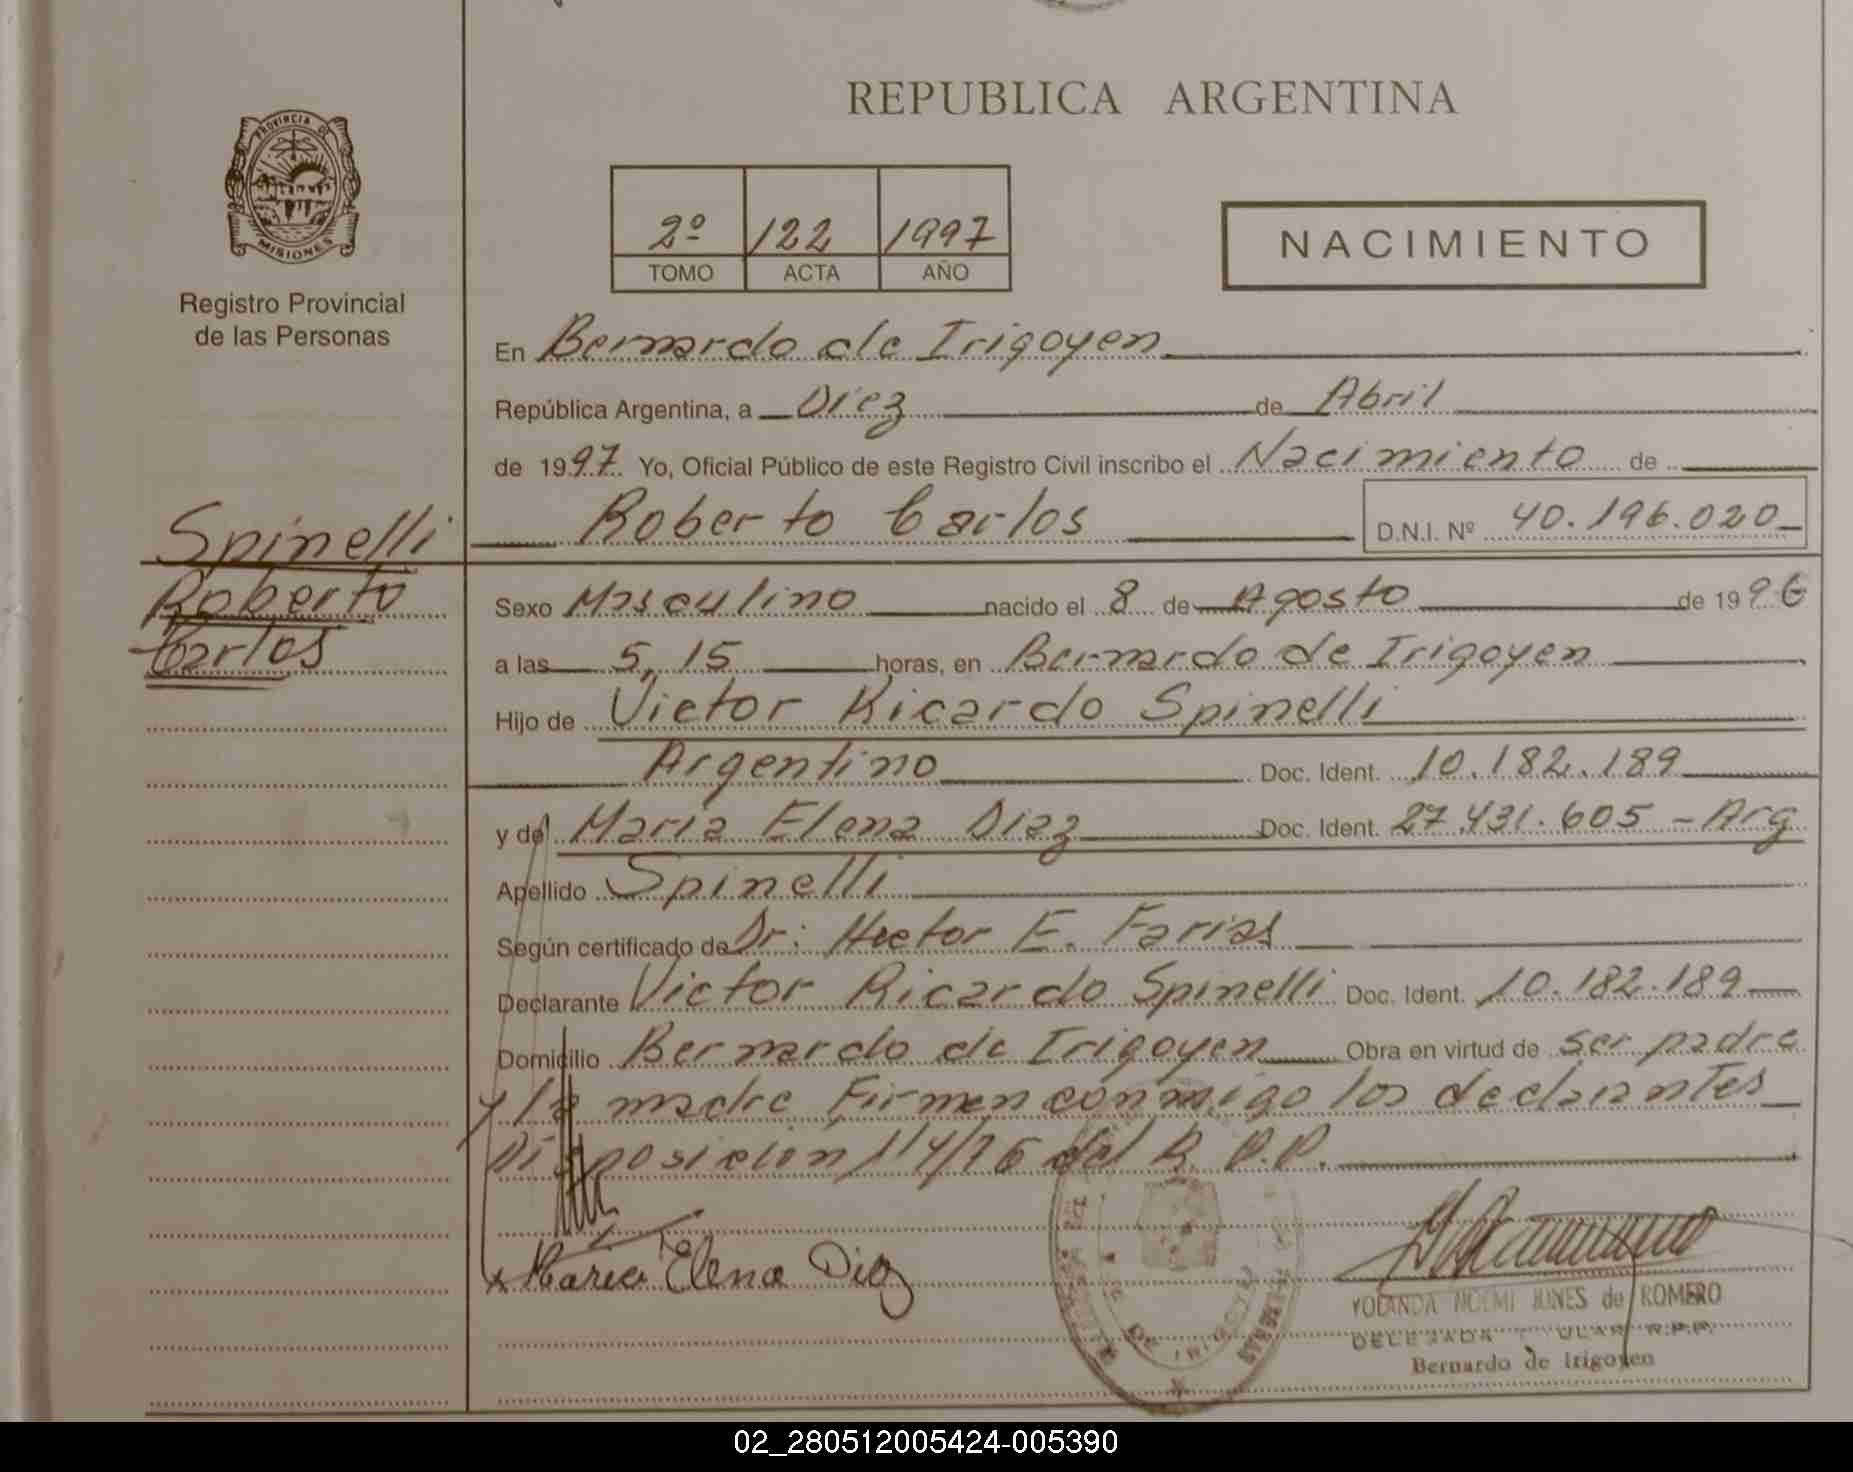 REPUBLICA ARGENTINA
PROVINCIA DE
MISIONES
Registro Provincial
de las Personas
2º 122 1997
TOMO ACTA AÑO
NACIMIENTO
En Bernardo de Irigoyen
República Argentina, a Diez de Abril
de 1997. Yo, Oficial Público de este Registro Civil inscribo el Nacimiento de
Roberto Carlos D.N.I. Nº 40.196.020
Spinelli
Roberto
Carlos
Sexo Masculino nacido el 8 de Agosto de 1996
a las 5,15 horas, en Bernardo de Irigoyen
Hijo de Victor Ricardo Spinelli
Argentino Doc. Ident. 10.182.189
y de Maria Elena Diaz Doc. Ident. 27.431.605 - Arg
Apellido Spinelli
Según certificado de Dr: Hector E. Farias
Declarante Victor Ricardo Spinelli Doc. Ident. 10.182.189
Domicilio Bernardo de Irigoyen Obra en virtud de ser padre
y la madre Firman conmigo los declarantes
Disposicion 114/76 del R.P.P.
x Maria Elena Diaz
YOLANDA NOEMI de ROMERO
R.P.P.
Bernardo de Irigoyen
DE IRIGOYEN
02_280512005424-005390